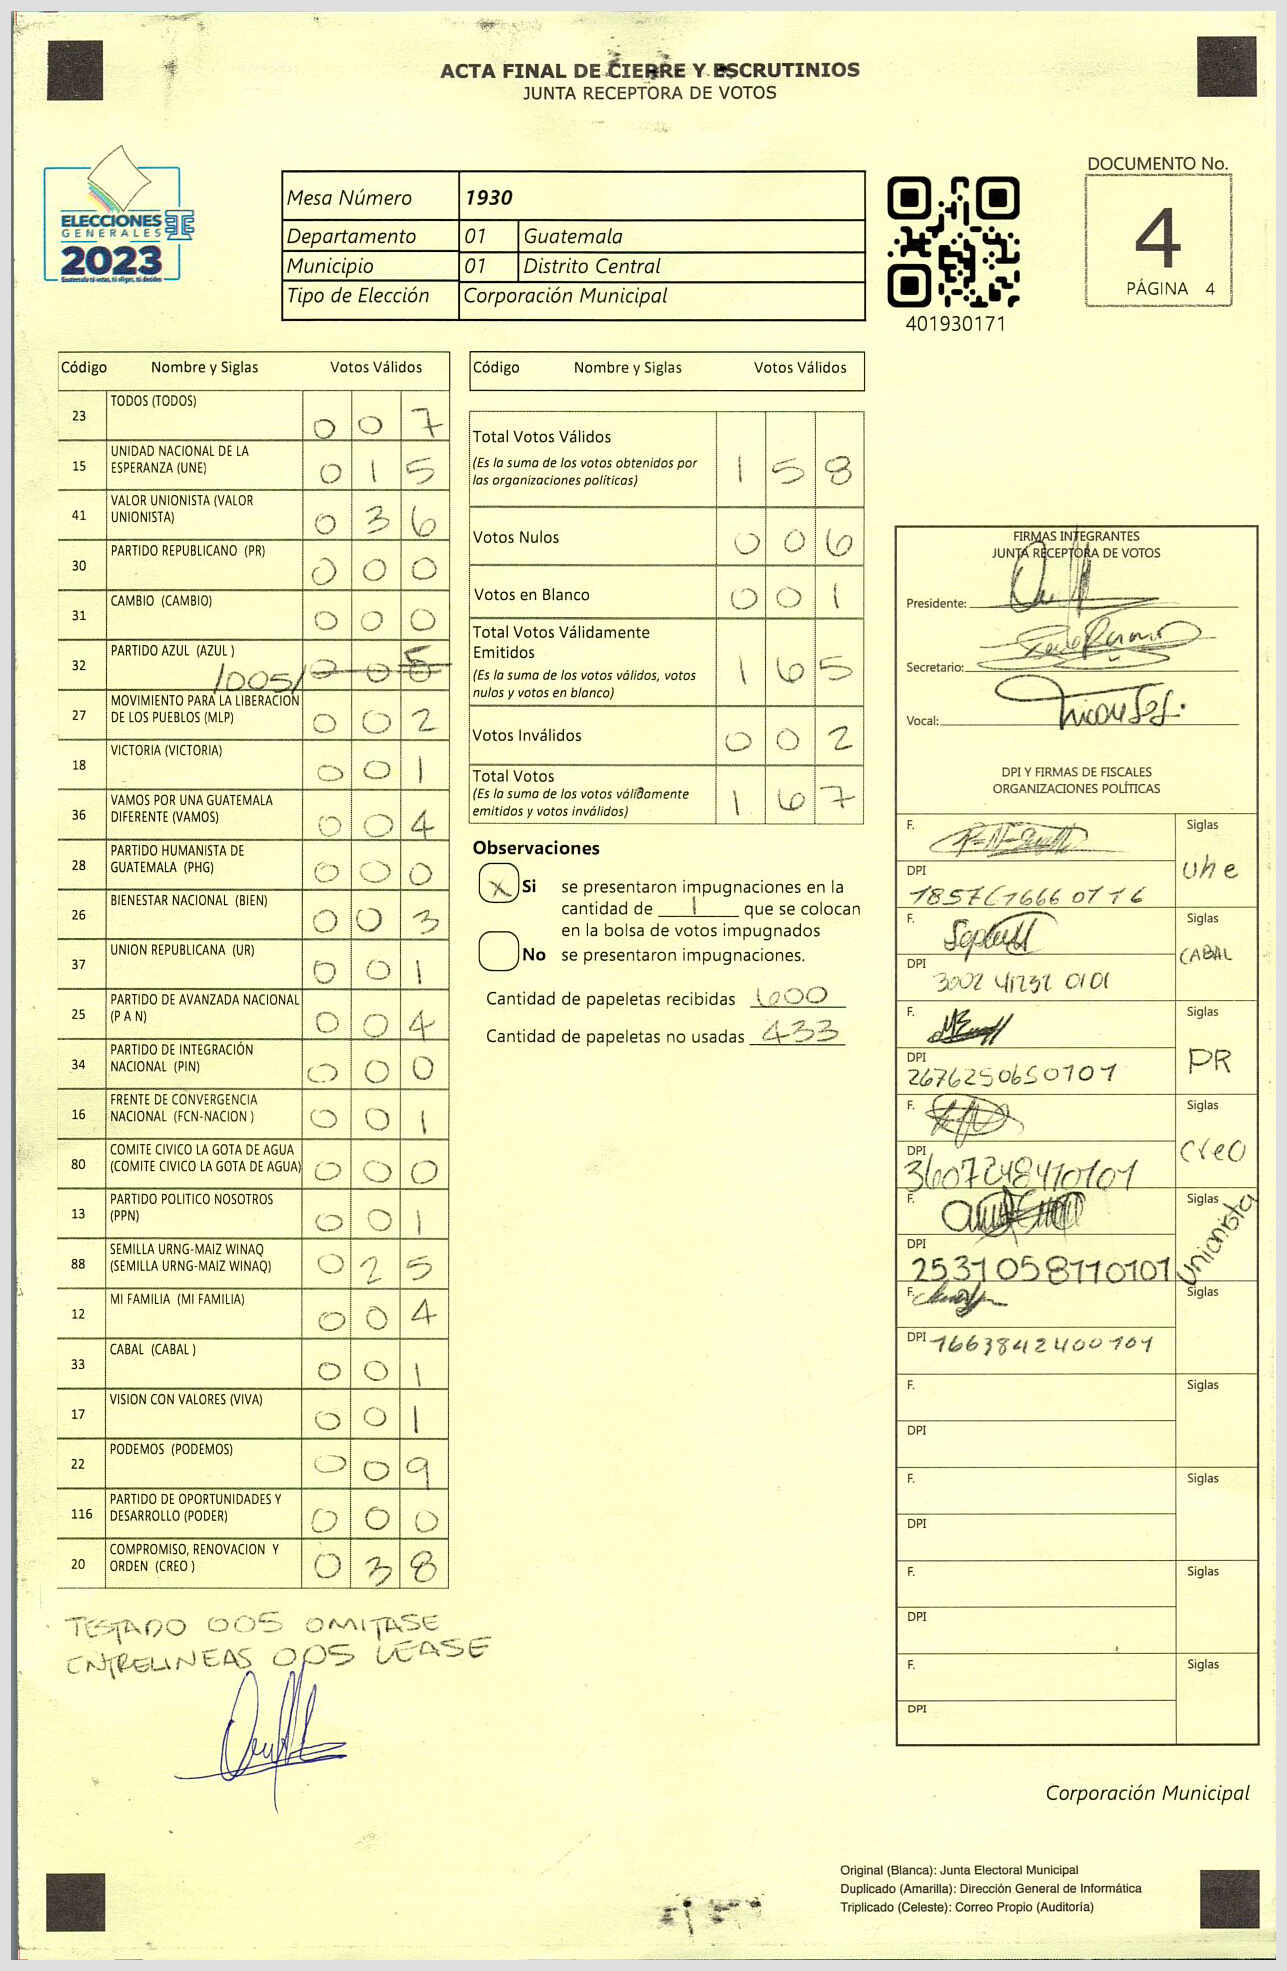 ACTA FINAL DE CIERRE Y ESCRUTINIOS
JUNTA RECEPTORA DE VOTOS
ELECCIONES
GENERALES
2023
Guatemala tú votas, tú eliges, tú decides
Mesa Número 1930
Departamento 01 Guatemala
Municipio 01 Distrito Central
Tipo de Elección Corporación Municipal
401930171
DOCUMENTO No.
4
PÁGINA 4
Código Nombre y Siglas Votos Válidos
23 TODOS (TODOS) 0 0 7
15 UNIDAD NACIONAL DE LA
ESPERANZA (UNE) 0 1 5
41 VALOR UNIONISTA (VALOR
UNIONISTA) 0 3 6
30 PARTIDO REPUBLICANO (PR) 0 0 0
31 CAMBIO (CAMBIO) 0 0 0
32 PARTIDO AZUL (AZUL ) /005/ 0 0 5
27 MOVIMIENTO PARA LA LIBERACION
DE LOS PUEBLOS (MLP) 0 0 2
18 VICTORIA (VICTORIA) 0 0 1
36 VAMOS POR UNA GUATEMALA
DIFERENTE (VAMOS) 0 0 4
28 PARTIDO HUMANISTA DE
GUATEMALA (PHG) 0 0 0
26 BIENESTAR NACIONAL (BIEN) 0 0 3
37 UNION REPUBLICANA (UR) 0 0 1
25 PARTIDO DE AVANZADA NACIONAL
(P A N) 0 0 4
34 PARTIDO DE INTEGRACIÓN
NACIONAL (PIN) 0 0 0
16 FRENTE DE CONVERGENCIA
NACIONAL (FCN-NACION ) 0 0 1
80 COMITE CIVICO LA GOTA DE AGUA
(COMITE CIVICO LA GOTA DE AGUA) 0 0 0
13 PARTIDO POLITICO NOSOTROS
(PPN) 0 0 1
88 SEMILLA URNG-MAIZ WINAQ
(SEMILLA URNG-MAIZ WINAQ) 0 2 5
12 MI FAMILIA (MI FAMILIA) 0 0 4
33 CABAL (CABAL ) 0 0 1
17 VISION CON VALORES (VIVA) 0 0 1
22 PODEMOS (PODEMOS) 0 0 9
116 PARTIDO DE OPORTUNIDADES Y
DESARROLLO (PODER) 0 0 0
20 COMPROMISO, RENOVACION Y
ORDEN (CREO ) 0 3 8
TESTADO 005 OMITASE
ENTRELINEAS 005 LEASE
Código Nombre y Siglas Votos Válidos
Total Votos Válidos
(Es la suma de los votos obtenidos por
las organizaciones políticas) 1 5 8
Votos Nulos 0 0 6
Votos en Blanco 0 0 1
Total Votos Válidamente
Emitidos
(Es la suma de los votos válidos, votos
nulos y votos en blanco) 1 6 5
Votos Inválidos 0 0 2
Total Votos
(Es la suma de los votos válidamente
emitidos y votos inválidos) 1 6 7
Observaciones
X Si se presentaron impugnaciones en la
cantidad de 1 que se colocan
en la bolsa de votos impugnados
No se presentaron impugnaciones.
Cantidad de papeletas recibidas 600
Cantidad de papeletas no usadas 433
FIRMAS INTEGRANTES
JUNTA RECEPTORA DE VOTOS
Presidente:
Secretario:
Vocal:
DPI Y FIRMAS DE FISCALES
ORGANIZACIONES POLÍTICAS
F. Siglas
une
DPI
F. Siglas
CABAL
DPI 3002 41232 0101
F. Siglas
PR
DPI
2676250650101
F. Siglas
Creo
DPI
3607248470101
F. Siglas
Unionista
DPI
2531058110101
F. Siglas
DPI 1663842400101
F. Siglas
DPI
F. Siglas
DPI
F. Siglas
DPI
F. Siglas
DPI
Corporación Municipal
Original (Blanca): Junta Electoral Municipal
Duplicado (Amarilla): Dirección General de Informática
Triplicado (Celeste): Correo Propio (Auditoría)